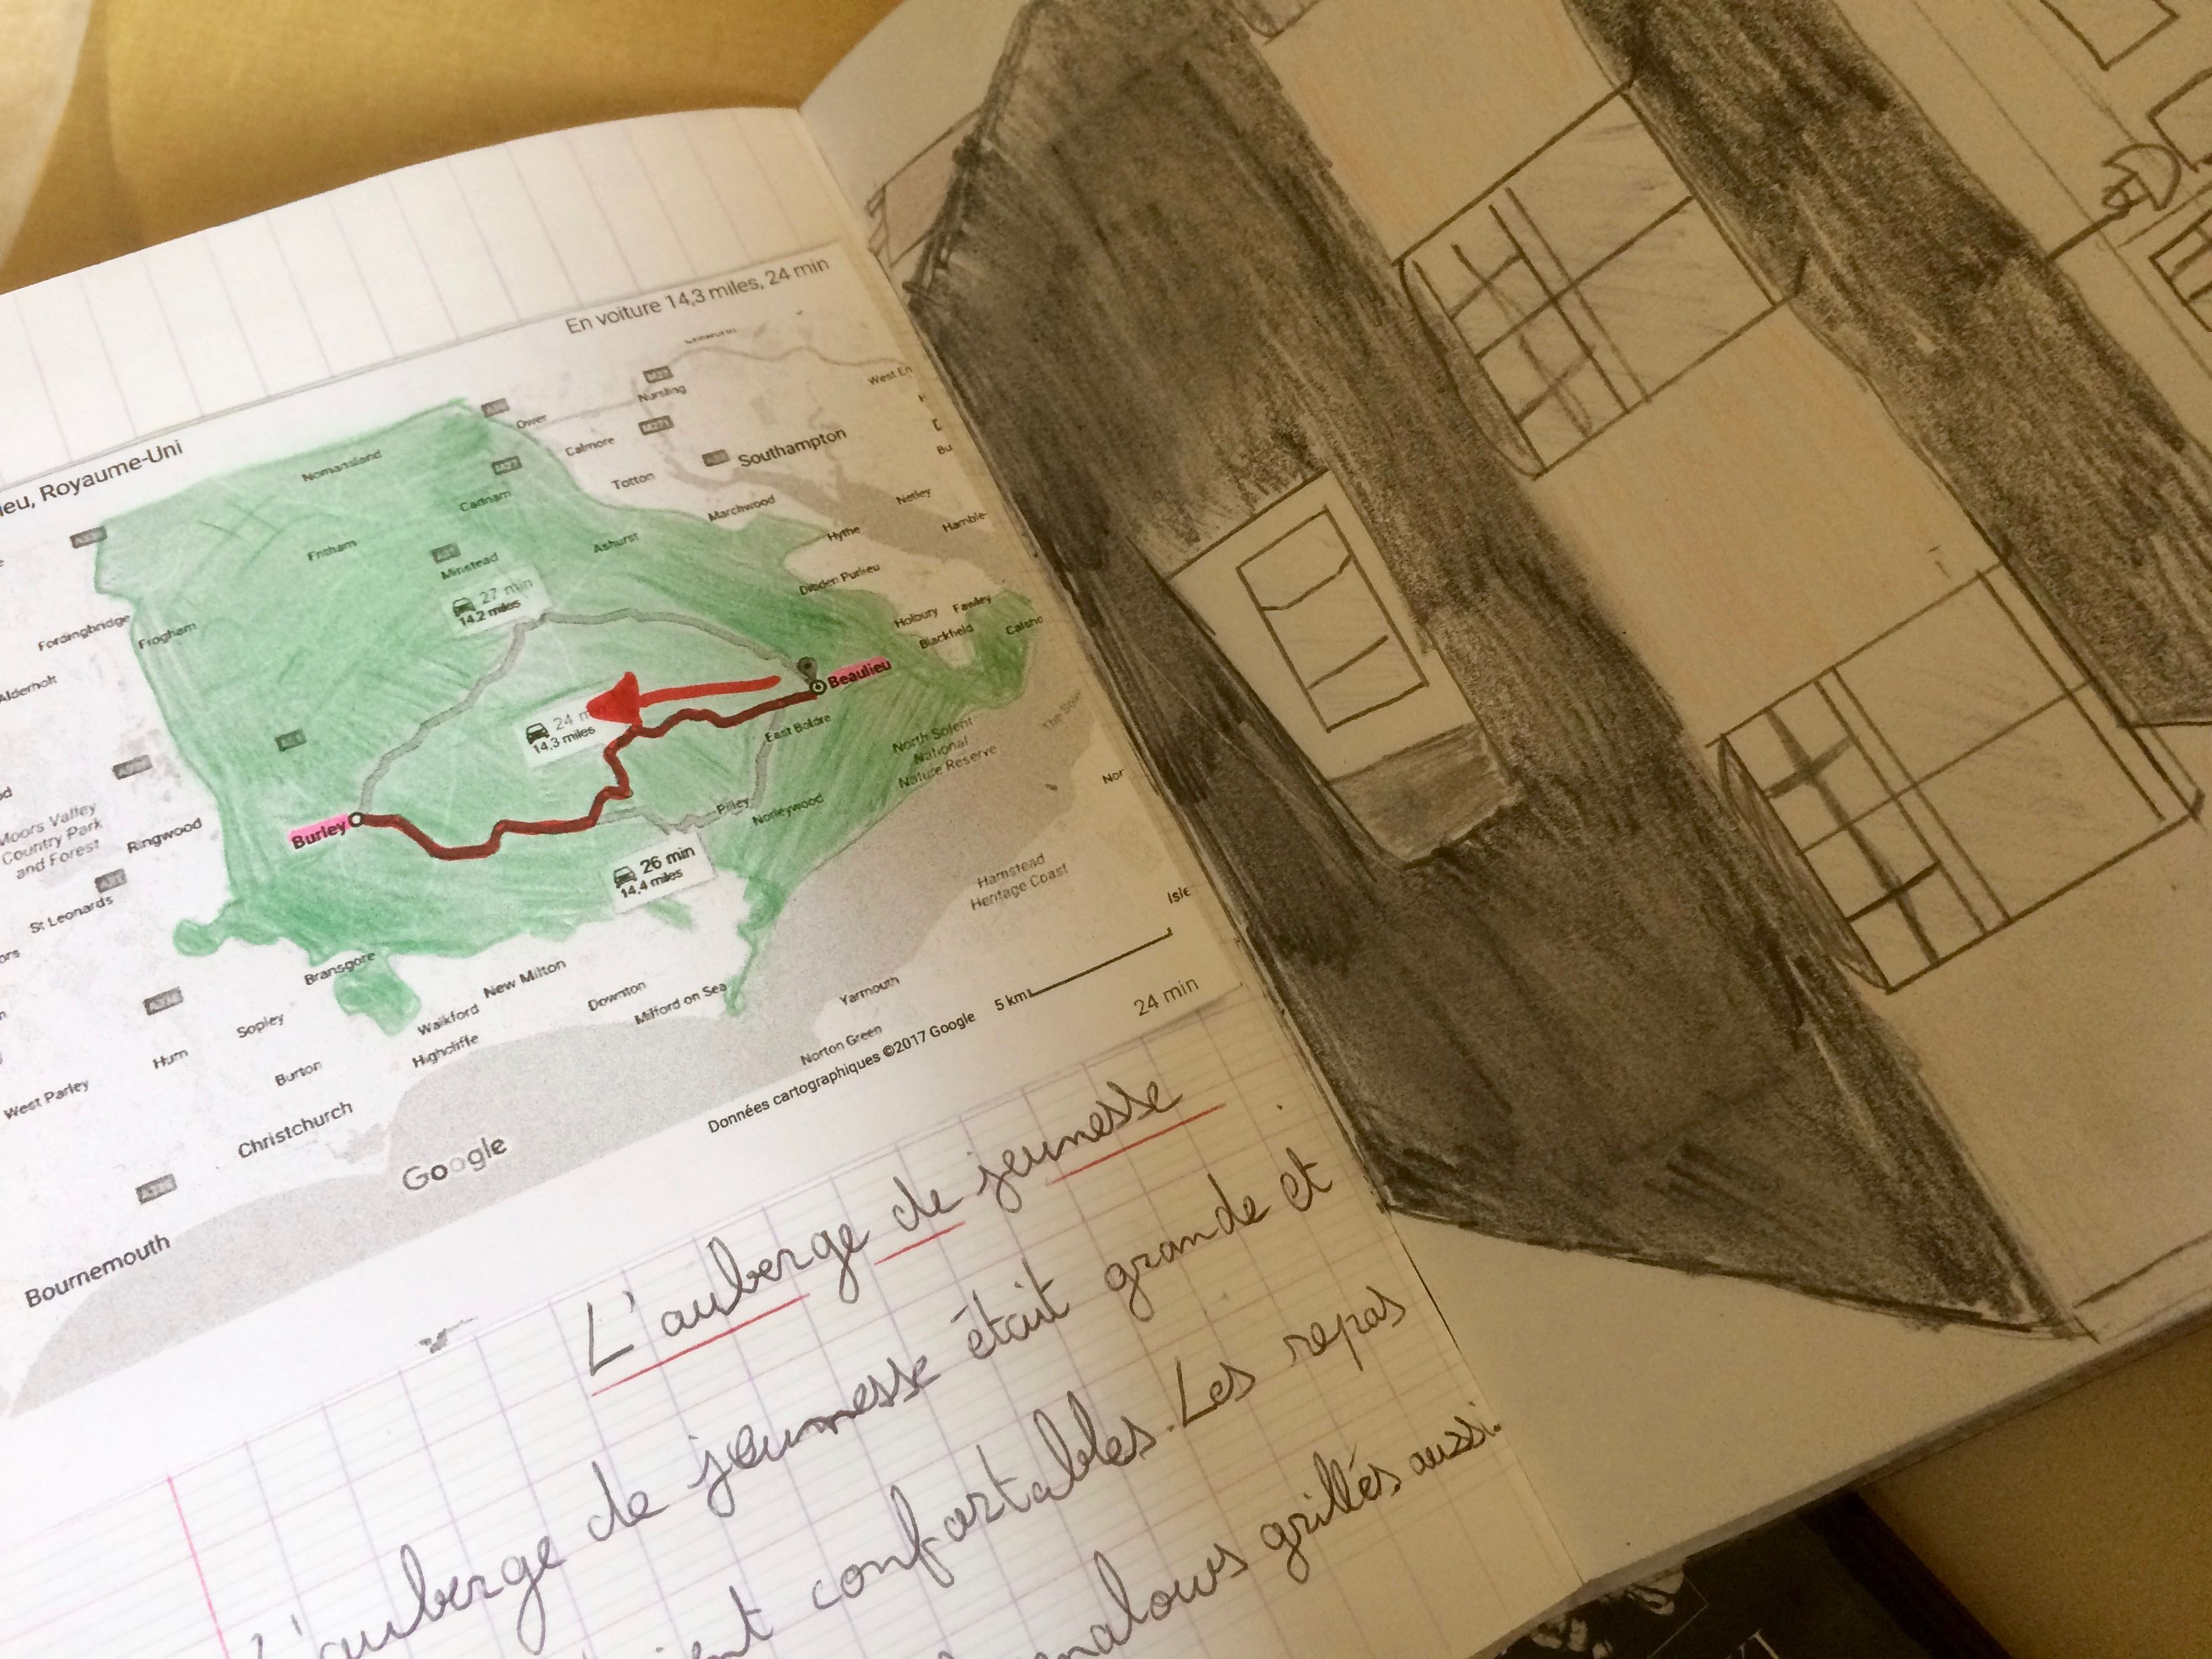 En voiture 14,3 miles, 24 min
ieu, Royaume-Uni
Nursling
West En
Ower
Calmore
Southampton
Nomansland
Totton
Cadnam
Marchwood
Netley
Hythe
Hamble-
Fritham
Minstead
Ashurst
Dibden Purlieu
27 min
14.2 miles
Holbury
Fawley
Blackfield
Calsho
Fordingbridge
Frogham
Alderholt
Beaulieu
24 m
14,3 miles
East Boldre
North Solent
National
Nature Reserve
Nor
Pilley
Norleywood
Burley
Moors Valley
Country Park
and Forest
Ringwood
26 min
14,4 miles
Hamstead
Heritage Coast
St Leonards
Isle
Bransgore
New Milton
Downton
Milford on Sea
Yarmouth
5 km
24 min
Sopley
Walkford
Highcliffe
Norton Green
Hurn
Burton
West Parley
Christchurch
Données cartographiques ©2017 Google
Google
Bournemouth
L'auberge de jeunesse
L'auberge de jeunesse était grande et
confortables. Les repas
grillés aussi.